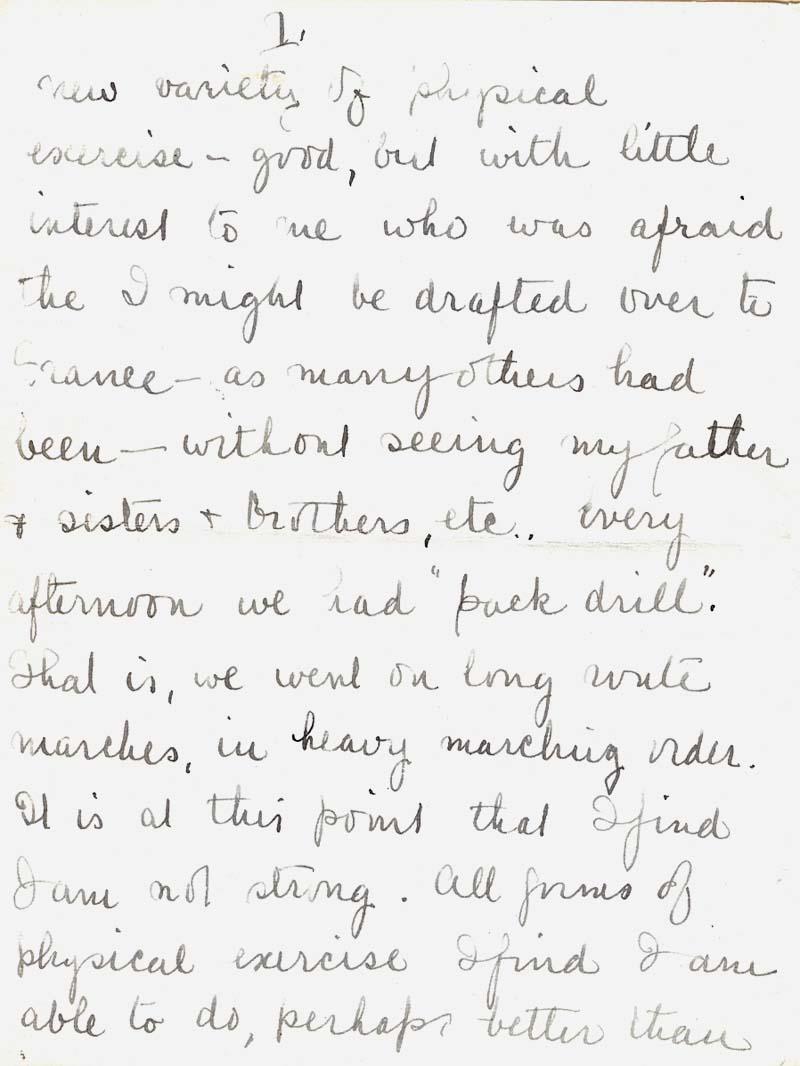 1.
new variety of physical
exercise – good, but with little
interest to me who was afraid
the I might be drafted over to
France – as many others had
been – without seeing my father
+ sisters + brothers, etc.. every
afternoon we had "pack drill".
That is, we went on long route
marches, in heavy marching order.
It is at this point that I find
I am not strong. All forms of
physical exercise I find I am
able to do, perhaps better than